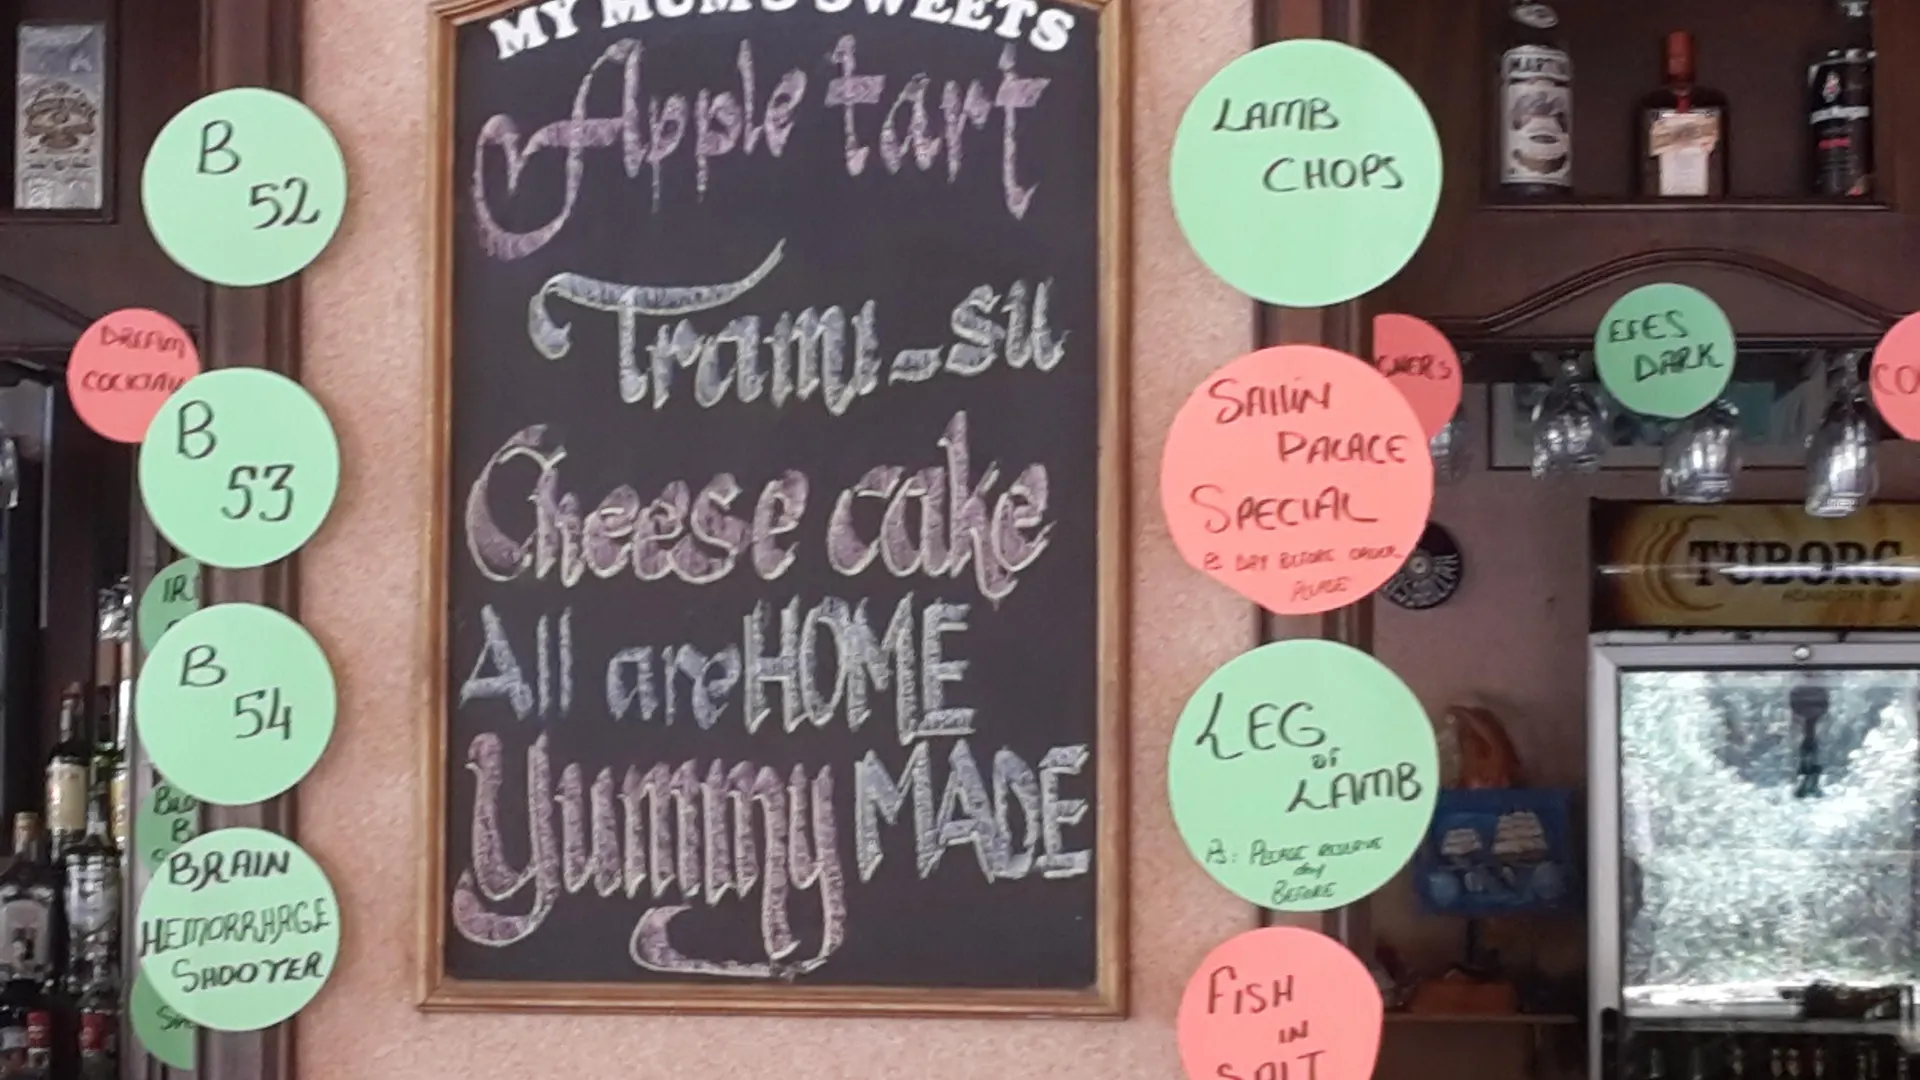 MY MUM'S SWEETS
Apple tart
Trami-su
Cheese cake
All are HOME
Yummy MADE
B
52
DREAM
COCKTAIL
B
53
B
54
BRAIN
HEMORRHAGE
SHOOTER
LAMB
CHOPS
SAILIN
PALACE
SPECIAL
DAY BEFORE ORDER
PLEASE
LEG
OF
LAMB
PLEASE RESERVE
day
BEFORE
FISH
IN
SALT
EFES
DARK
TUBORG
MARTINI